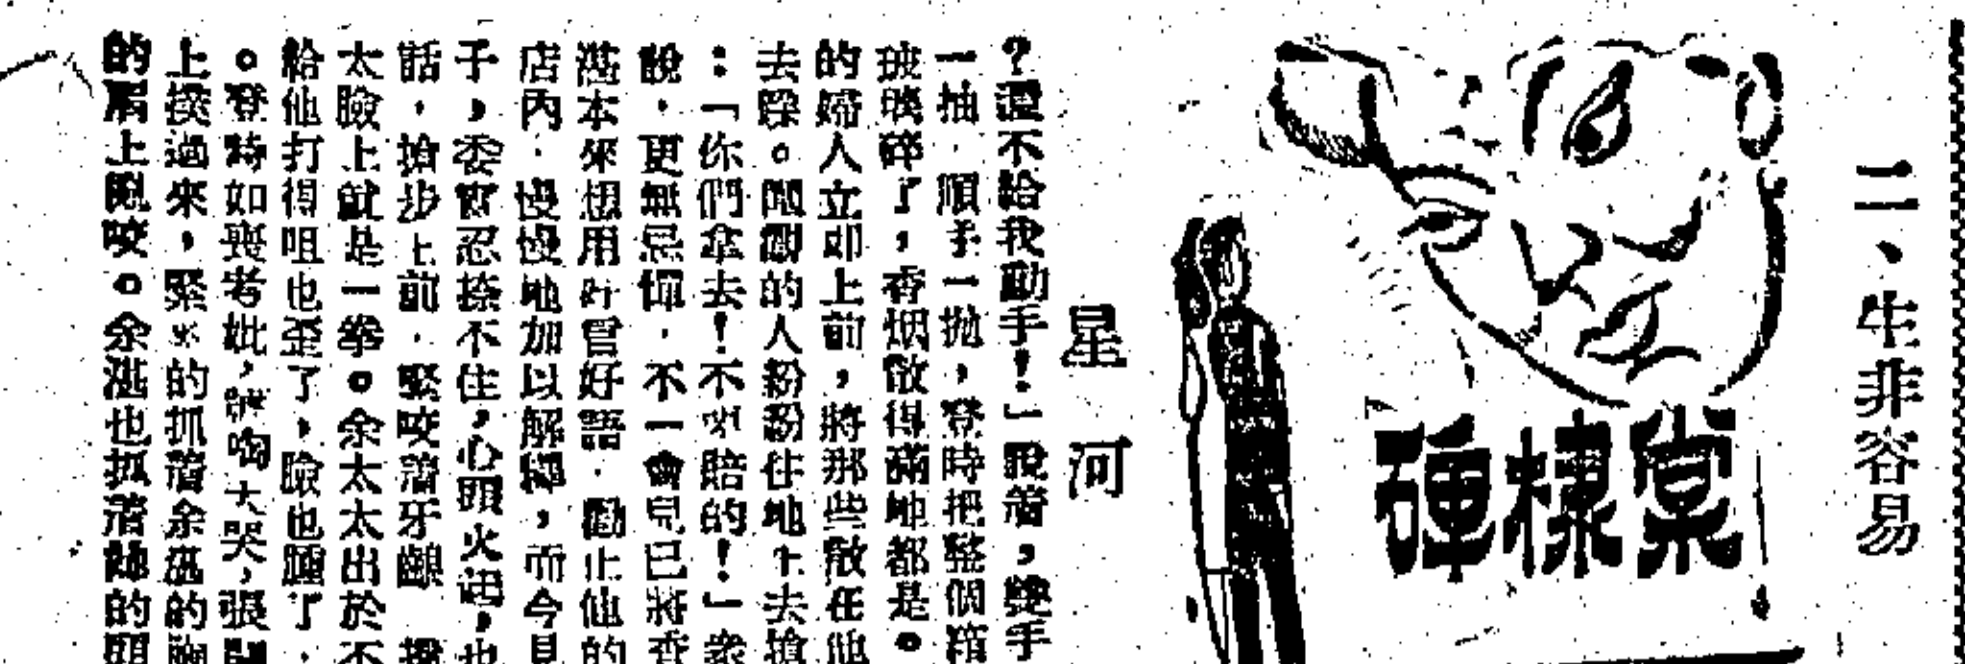 二、生非容易
棠棣
星河
？還不給我動手！」說着，雙手
一抽，順手一拋，登時把整個箱
玻璃碎了，香烟散得滿地都是。
的婦人立即上前，將那些散在地
去踩。圍觀的人紛紛往地上去搶
：「你們拿去！不必賠的！」衆
說，更無忌憚，不一會兒已將香
湛本來想用好言好語，勸止他的
店內，慢慢地加以解釋，而今見
子，委實忍捺不住，心頭火起，也
話，搶步上前，緊咬着牙齦
太臉上就是一拳。余太太出於不
給他打得咀也歪了，臉也腫了，
。登時如喪考妣，號啕大哭，張開
上撲過來，緊緊的抓着余湛的胸
的肩上亂咬。余湛也抓着她的頭